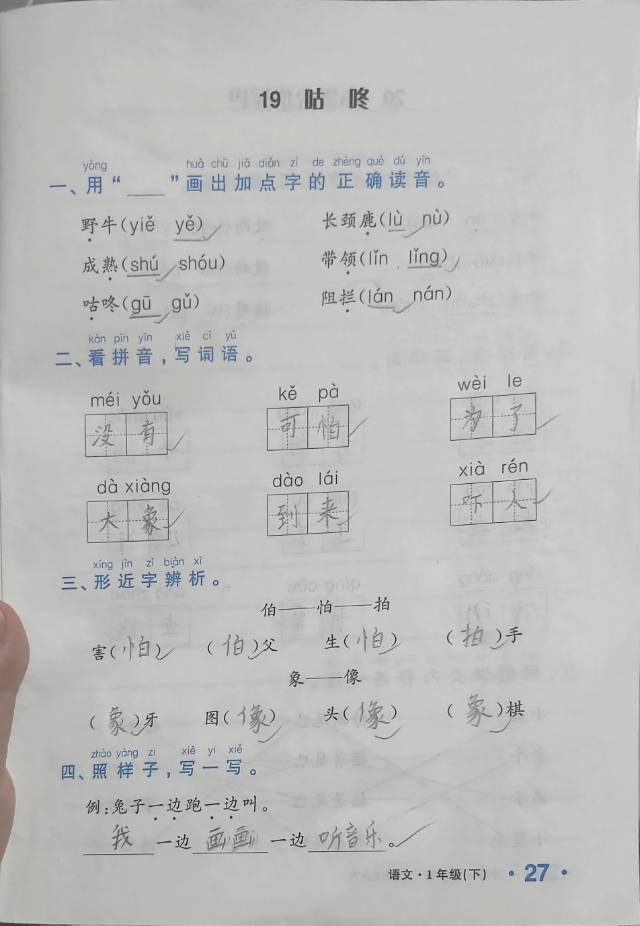 19 咕咚
yòng huà chū jiā diǎn zì de zhèng què dú yīn
一、用“____”画出加点字的正确读音。
野牛(yiě yě) 长颈鹿(lù nù)
成熟(shú shóu) 带领(lǐn lǐng)
咕咚(gū gǔ) 阻拦(lán nán)
kàn pīn yīn xiě cí yǔ
二、看拼音,写词语。
méi yǒu kě pà wèi le
没有 可怕 为了
dà xiàng dào lái xià rén
大象 到来 吓人
xíng jìn zì biàn xī
三、形近字辨析。
伯——怕——拍
害(怕) (伯)父 生(怕) (拍)手
象——像
(象)牙 图(像) 头(像) (象)棋
zhào yàng zi xiě yi xiě
四、照样子,写一写。
例:兔子一边跑一边叫。
我一边画画一边听音乐。
语文·1年级(下) ·27·